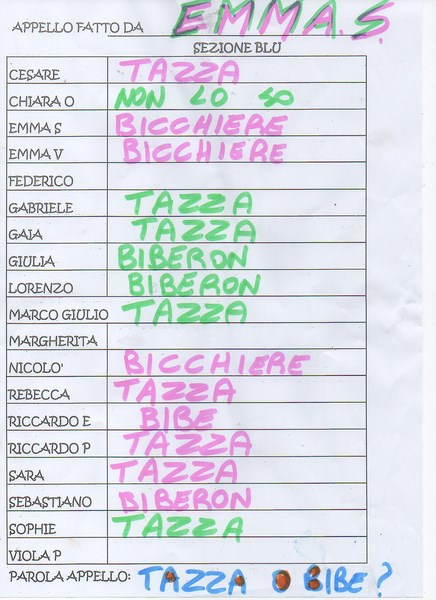 APPELLO FATTO DA EMMA.S.
SEZIONE BLU
CESARE TAZZA
CHIARA O NON LO SO
EMMA S BICCHIERE
EMMA V BICCHIERE
FEDERICO
GABRIELE TAZZA
GAIA TAZZA
GIULIA BIBERON
LORENZO BIBERON
MARCO GIULIO TAZZA
MARGHERITA
NICOLO' BICCHIERE
REBECCA TAZZA
RICCARDO E BIBE
RICCARDO P TAZZA
SARA TAZZA
SEBASTIANO BIBERON
SOPHIE TAZZA
VIOLA P
PAROLA APPELLO: TAZZA O BIBE?